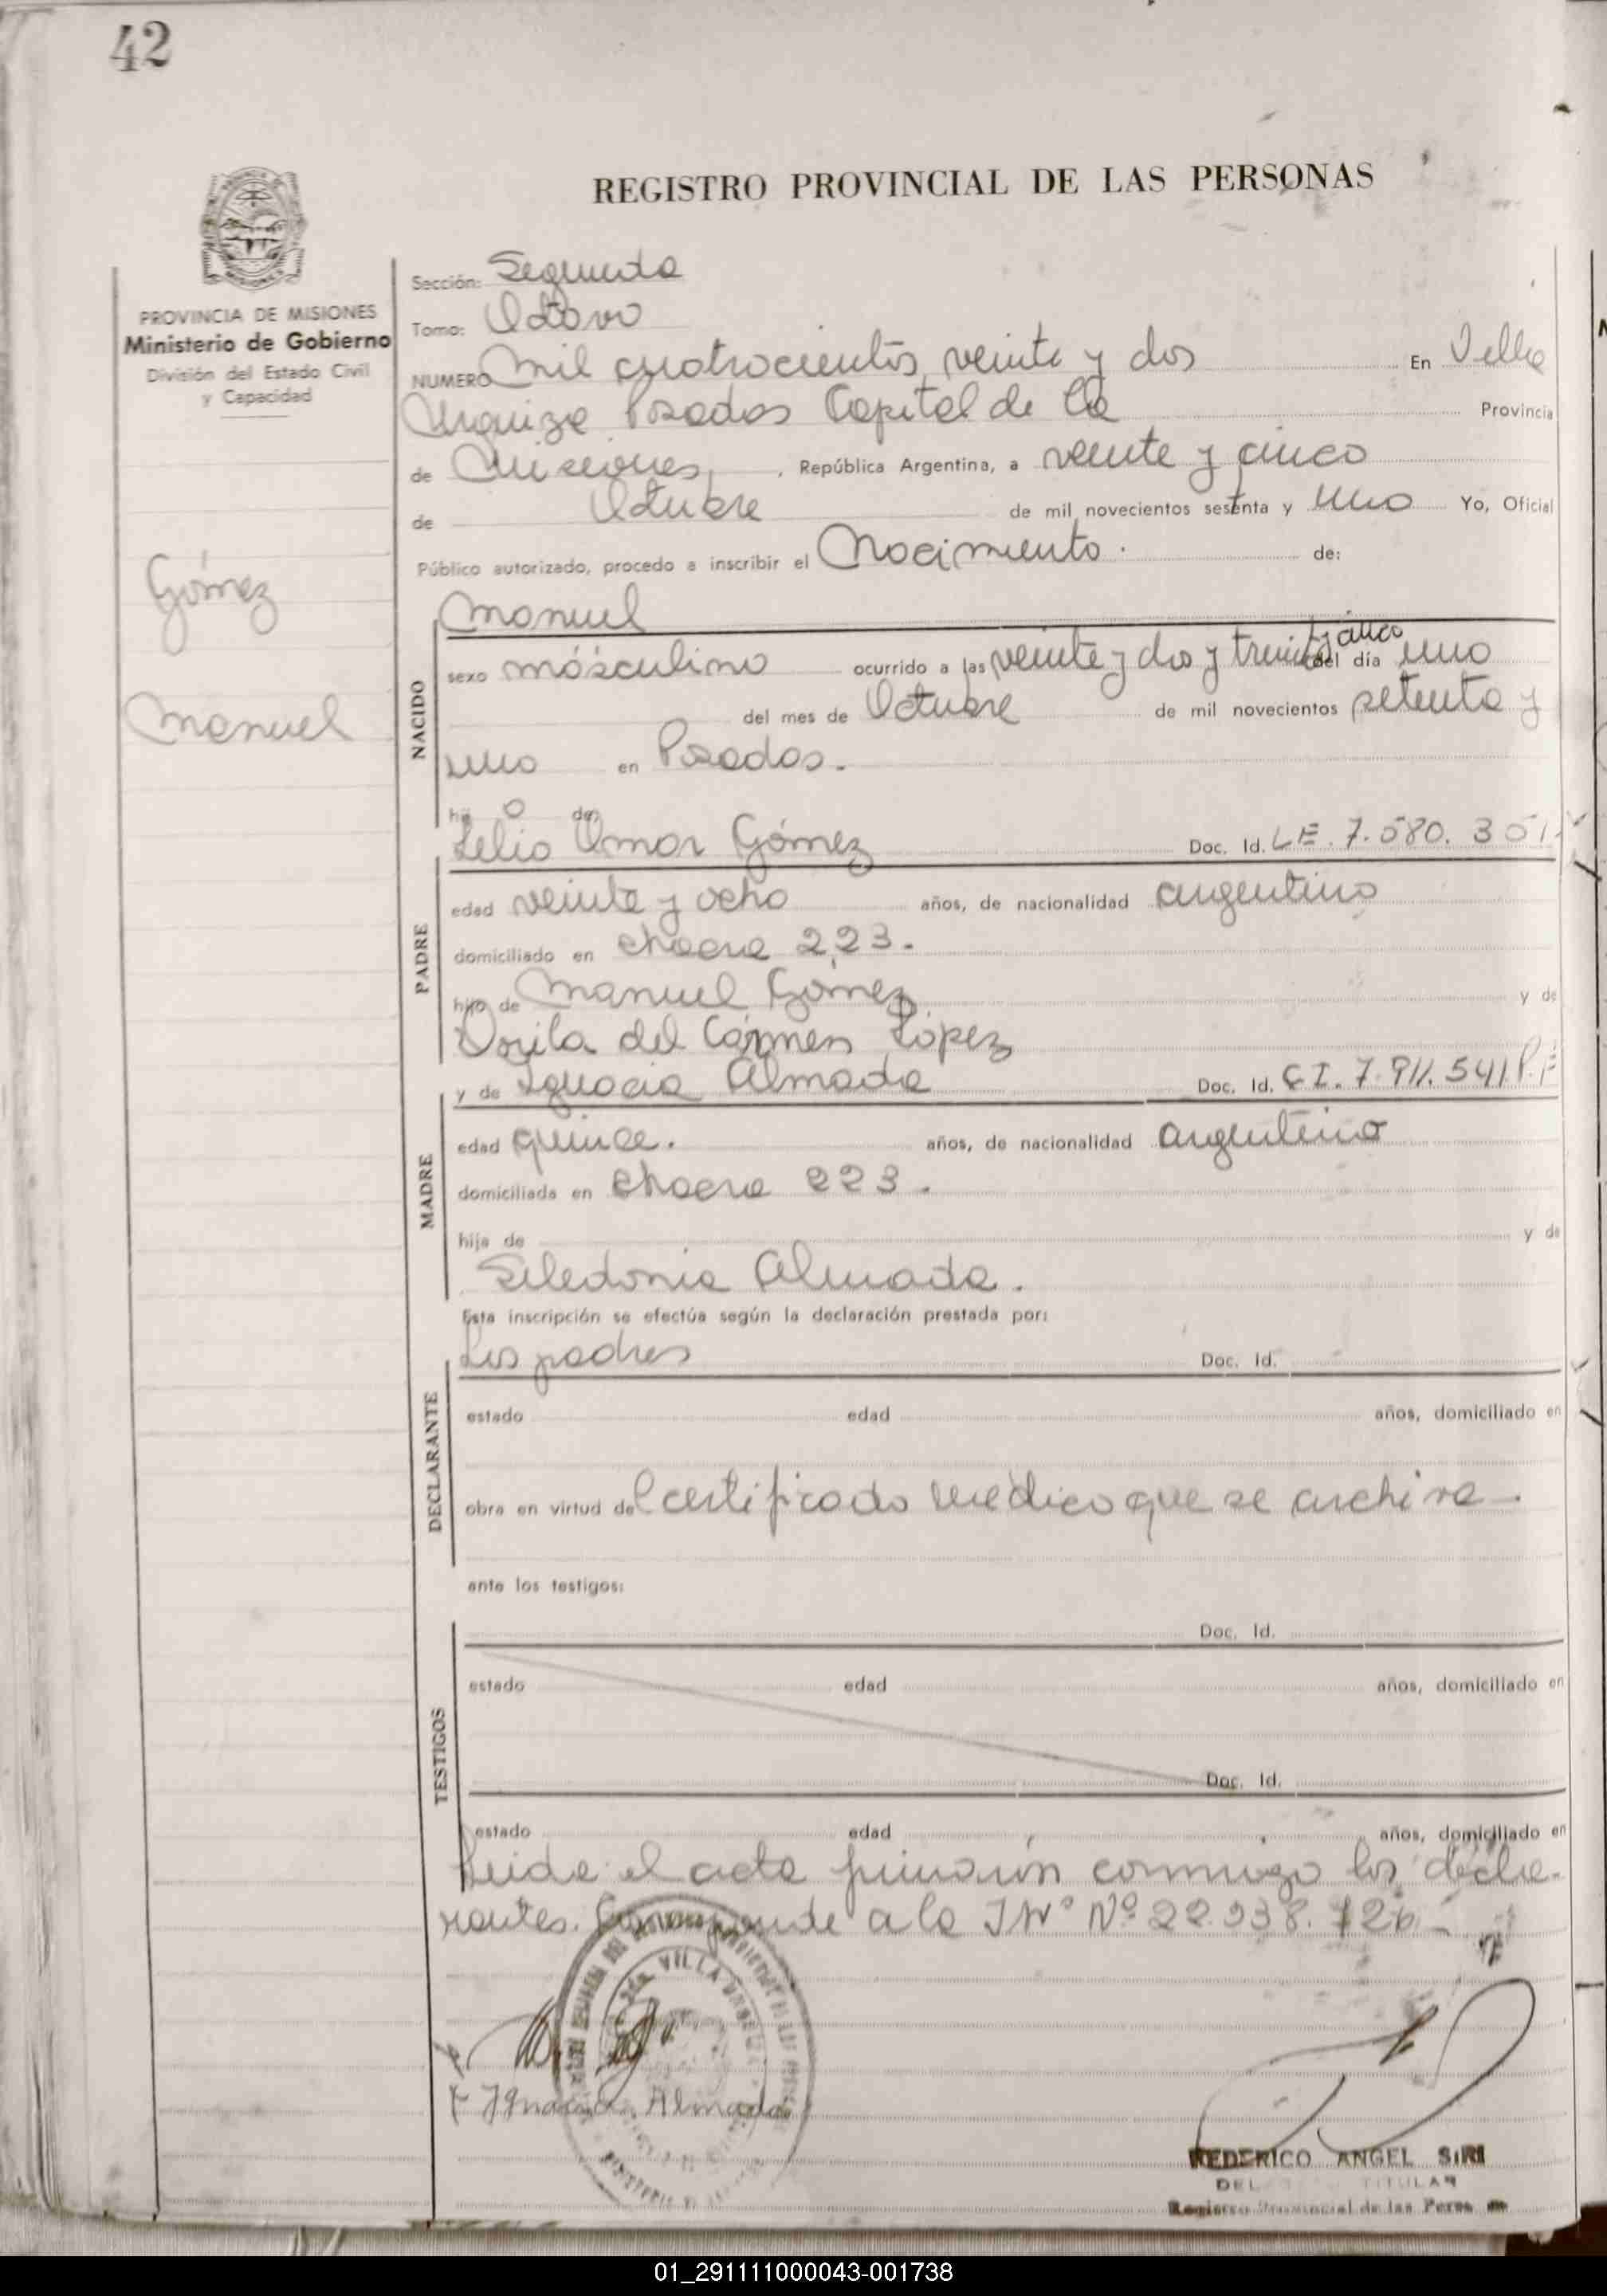 42
REGISTRO PROVINCIAL DE LAS PERSONAS
PROVINCIA DE MISIONES
Ministerio de Gobierno
División del Estado Civil
y Capacidad
Gómez
Manuel
Sección: Segunda
Tomo: Octavo
NUMERO Mil cuatrocientos veinte y dos En Villa
Urquiza Posadas Capital de la Provincia
de Misiones, República Argentina, a veinte y cinco
de Octubre de mil novecientos setenta y uno Yo, Oficial
Público autorizado, procedo a inscribir el Nacimiento. de:
NACIDO
Manuel
sexo másculino ocurrido a las veinte y dos y treinta y cinco del día uno
del mes de Octubre de mil novecientos setenta y
uno en Posadas.
hij o de:
Lelio Omar Gómez Doc. Id. LE. 7.580.351.
PADRE
edad veinte y ocho años, de nacionalidad argentino
domiciliado en chacra 223.
hijo de Manuel Gómez y de
Dorila del Cármen López
y de Ignacia Almada Doc. Id. C.I. 7.911.541 P.F
MADRE
edad quince. años, de nacionalidad argentina
domiciliada en chacra 223.
hija de y de
Seledonia Almada.
Esta inscripción se efectúa según la declaración prestada por:
DECLARANTE
Los padres Doc. Id.
estado edad años, domiciliado en
obra en virtud del certificado médico que se archiva.
ante los testigos:
TESTIGOS
Doc. Id.
estado edad años, domiciliado en
Doc. Id.
estado edad años, domiciliado en
Leida el acta firmarón conmigo los decla-
rantes. Corresponde a la N° 22.938.726.-
VILLA URQUIZA
Ignacia Almada
FEDERICO ANGEL SIRI
TITULAR
Registro Provincial de las Personas
01_291111000043-001738